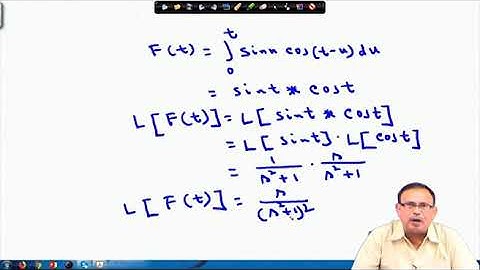 F(t) = ∫₀ᵗ sinu cos(t-u) du
= sint * cost
L[F(t)] = L[sint * cost]
= L[sint] · L[cost]
= 1/(s²+1) · s/(s²+1)
L[F(t)] = s/(s²+1)²